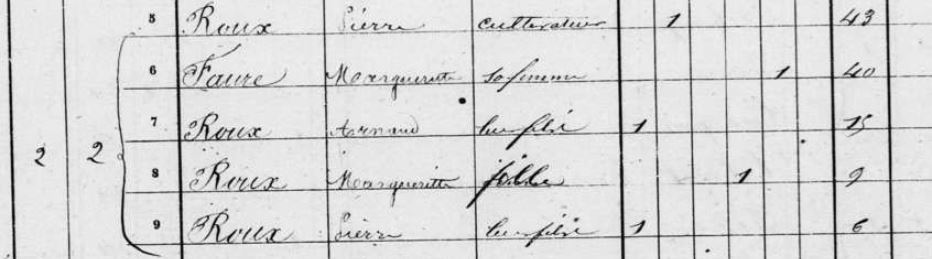 5 Roux Pierre cultivateur 1 43
6 Faure Margueritte sa femme 1 40
7 Roux Arnaud leur fils 1 15
2 2
8 Roux Margueritte fille 1 9
9 Roux Pierre leur fils 1 6